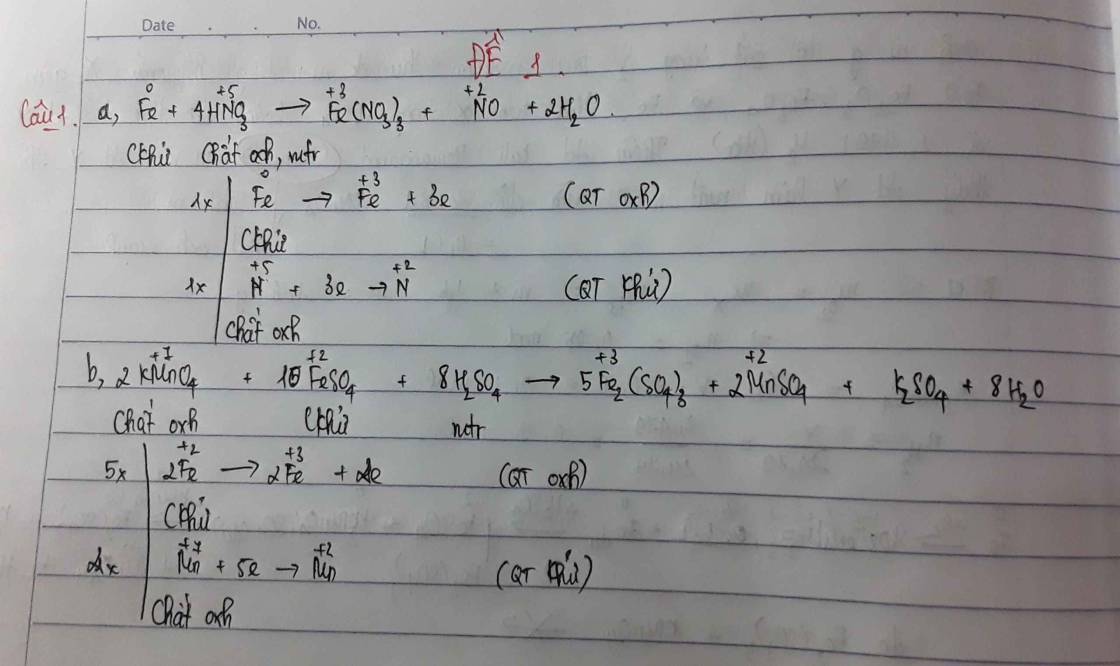 Date . . No.
ĐỀ 1.
Câu 1. a, Fe⁰ + 4HN⁺⁵O₃ → Fe⁺³(NO₃)₃ + N⁺²O + 2H₂O.
Ckhử Chất oxh, mtr
1x Fe⁰ → Fe⁺³ + 3e (QT oxh)
Ckhử
1x N⁺⁵ + 3e → N⁺² (QT khử)
Chất oxh
b, 2KMn⁺⁷O₄ + 10Fe⁺²SO₄ + 8H₂SO₄ → 5Fe⁺³₂(SO₄)₃ + 2Mn⁺²SO₄ + K₂SO₄ + 8H₂O
Chất oxh Ckhử mtr
5x 2Fe⁺² → 2Fe⁺³ + 2e (QT oxh)
Ckhử
2x Mn⁺⁷ + 5e → Mn⁺² (QT khử)
Chất oxh